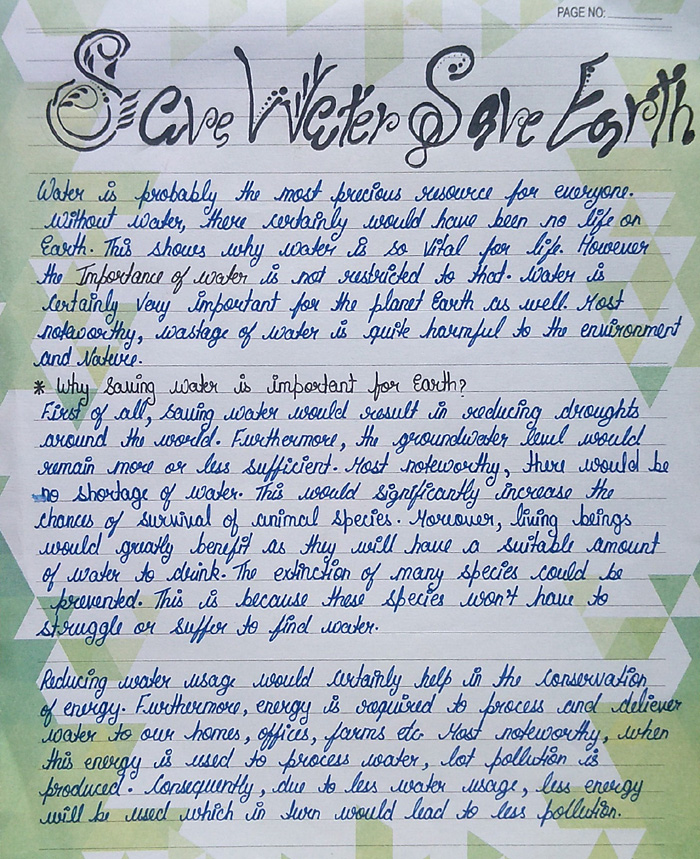 PAGE NO:
Save Water Save Earth
Water is probably the most precious resource for everyone.
Without water, there certainly would have been no life on
Earth. This shows why water is so vital for life. However
the Importance of water is not restricted to that. Water is
certainly very important for the planet Earth as well. Most
noteworthy, wastage of water is quite harmful to the environment
and Nature.
* Why Saving water is important for Earth?
First of all, saving water would result in reducing droughts
around the world. Furthermore, the groundwater level would
remain more or less sufficient. Most noteworthy, there would be
no shortage of water. This would significantly increase the
chances of survival of animal species. Moreover, living beings
would greatly benefit as they will have a suitable amount
of water to drink. The extinction of many species could be
prevented. This is because these species won't have to
struggle or suffer to find water.
Reducing water usage would certainly help in the conservation
of energy. Furthermore, energy is required to process and deliever
water to our homes, offices, farms etc. Most noteworthy, when
this energy is used to process water, lot pollution is
produced. Consequently, due to less water usage, less energy
will be used which in turn would lead to less pollution.